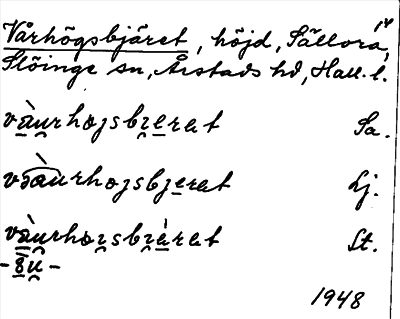 IV
Vårhögsbjäret, höjd, Sällora,
Slöinge sn, Årstads hd, Hall. l.
vàu̯rhojsbjerat Sa.
jsbjerat Lj.
vàu̯rhojsbjèrat St.
1948